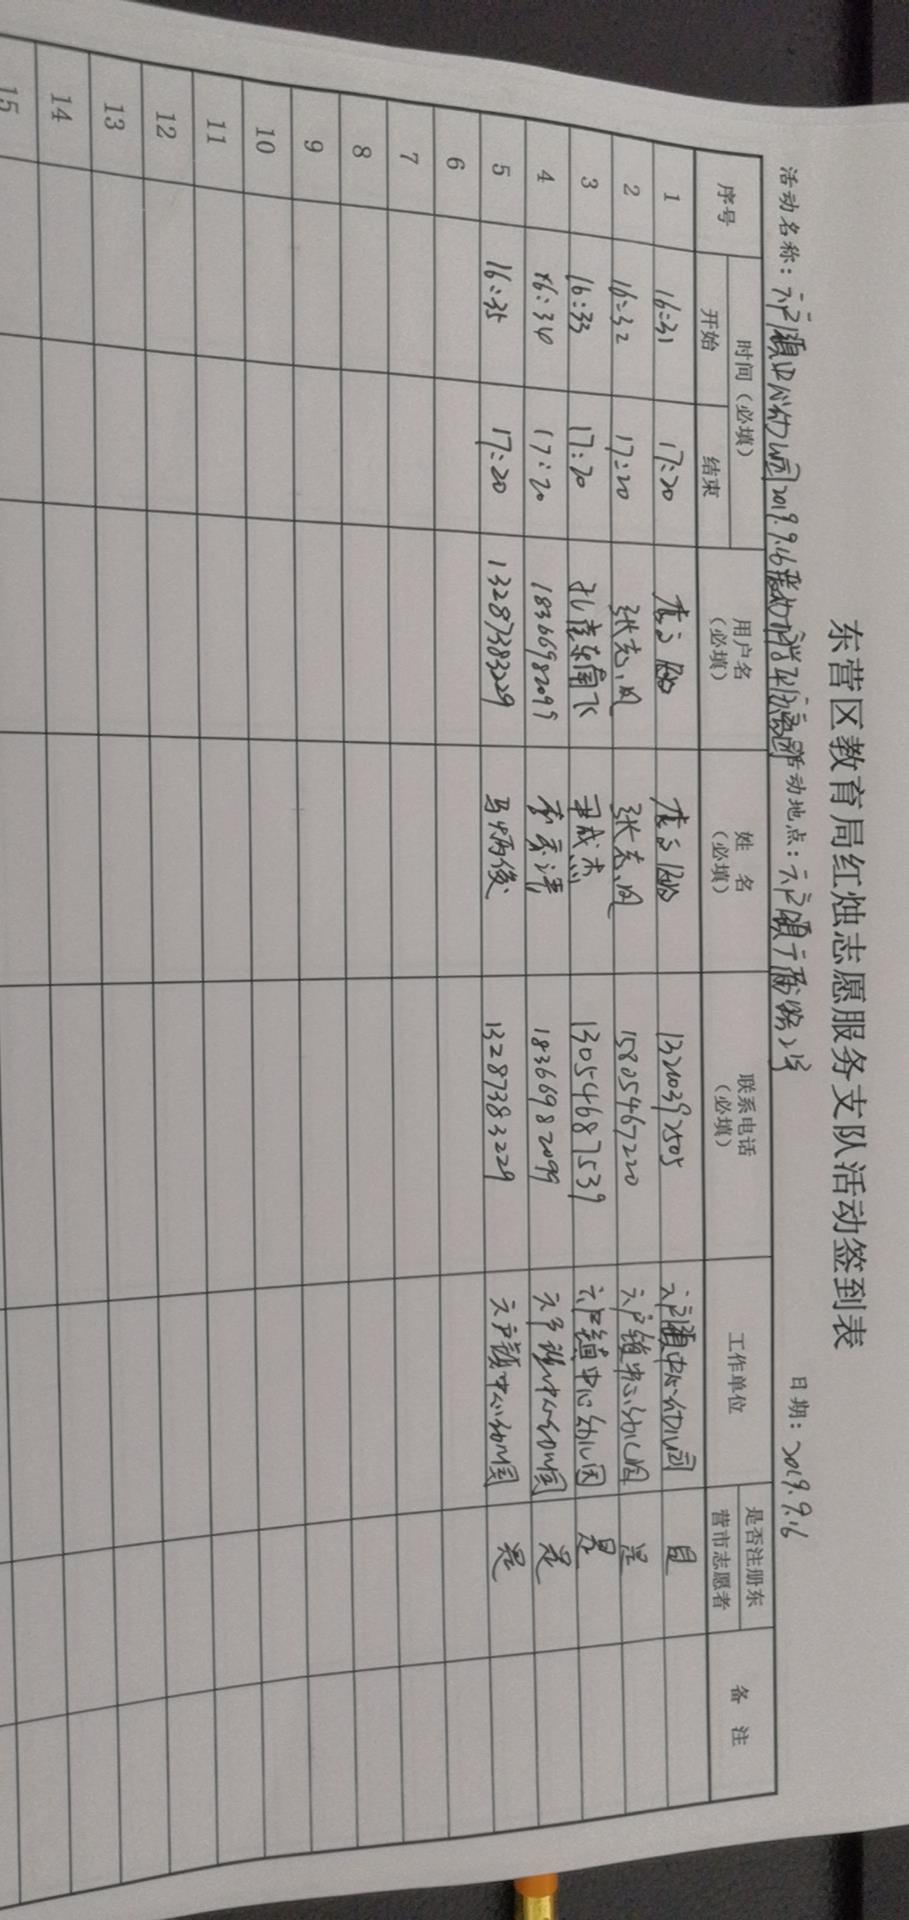 东营区教育局红烛志愿服务支队活动签到表
活动名称：六户镇中心幼儿园2019.9.16 活动地点：六户镇 路2号 日期：2019.9.16
序号 时间（必填） 用户名（必填） 姓名（必填） 联系电话（必填） 工作单位 是否注册东营市志愿者 备注
开始 结束
1 16:31 17:20 13210392505 六户镇中心幼儿园 是
2 16:32 17:20 张志凤 张志凤 15805467220 六户镇中心幼儿园 是
3 16:33 17:20 孔雀东南飞 尹成杰 13054687539 六户镇中心幼儿园 是
4 16:34 17:20 18366982099 18366982099 六户镇中心幼儿园 是
5 16:35 17:20 13287383229 马丙俊 13287383229 六户镇中心幼儿园 是
6
7
8
9
10
11
12
13
14
15